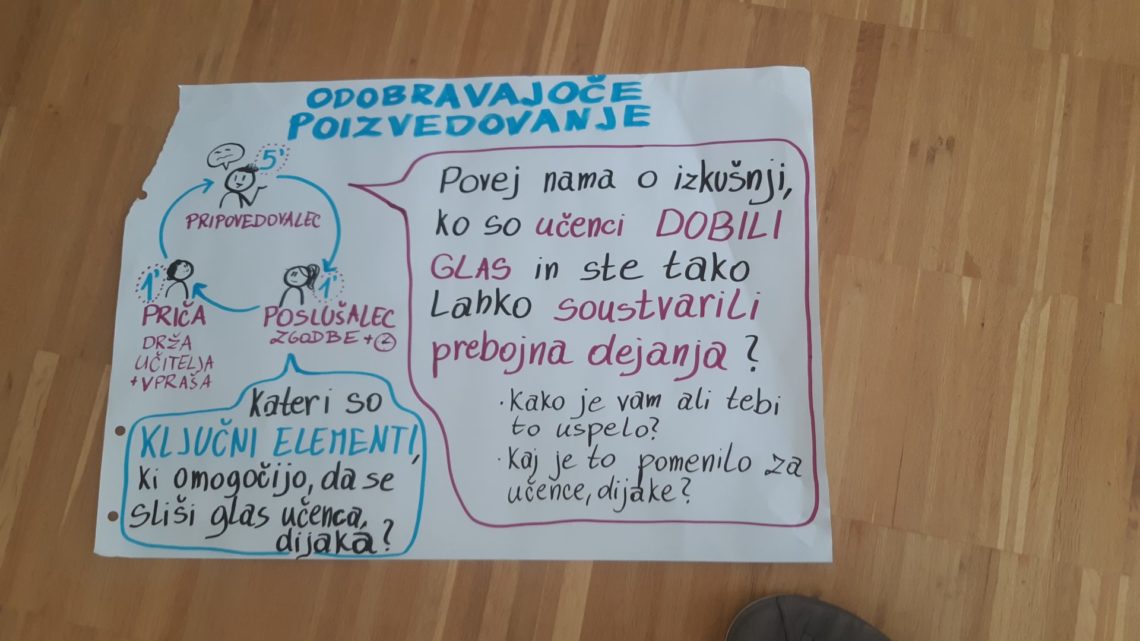 ODOBRAVAJOČE
POIZVEDOVANJE
5'
PRIPOVEDOVALEC
1'
PRIČA
DRŽA
UČITELJA
+ VPRAŠA
1'
POSLUŠALEC
ZGODBE +
Povej nama o izkušnji,
ko so učenci DOBILI
GLAS in ste tako
Lahko soustvarili
prebojna dejanja?
· Kako je vam ali tebi
to uspelo?
· Kaj je to pomenilo za
učence, dijake?
Kateri so
KLJUČNI ELEMENTI,
ki omogočijo, da se
sliši glas učenca,
dijaka?